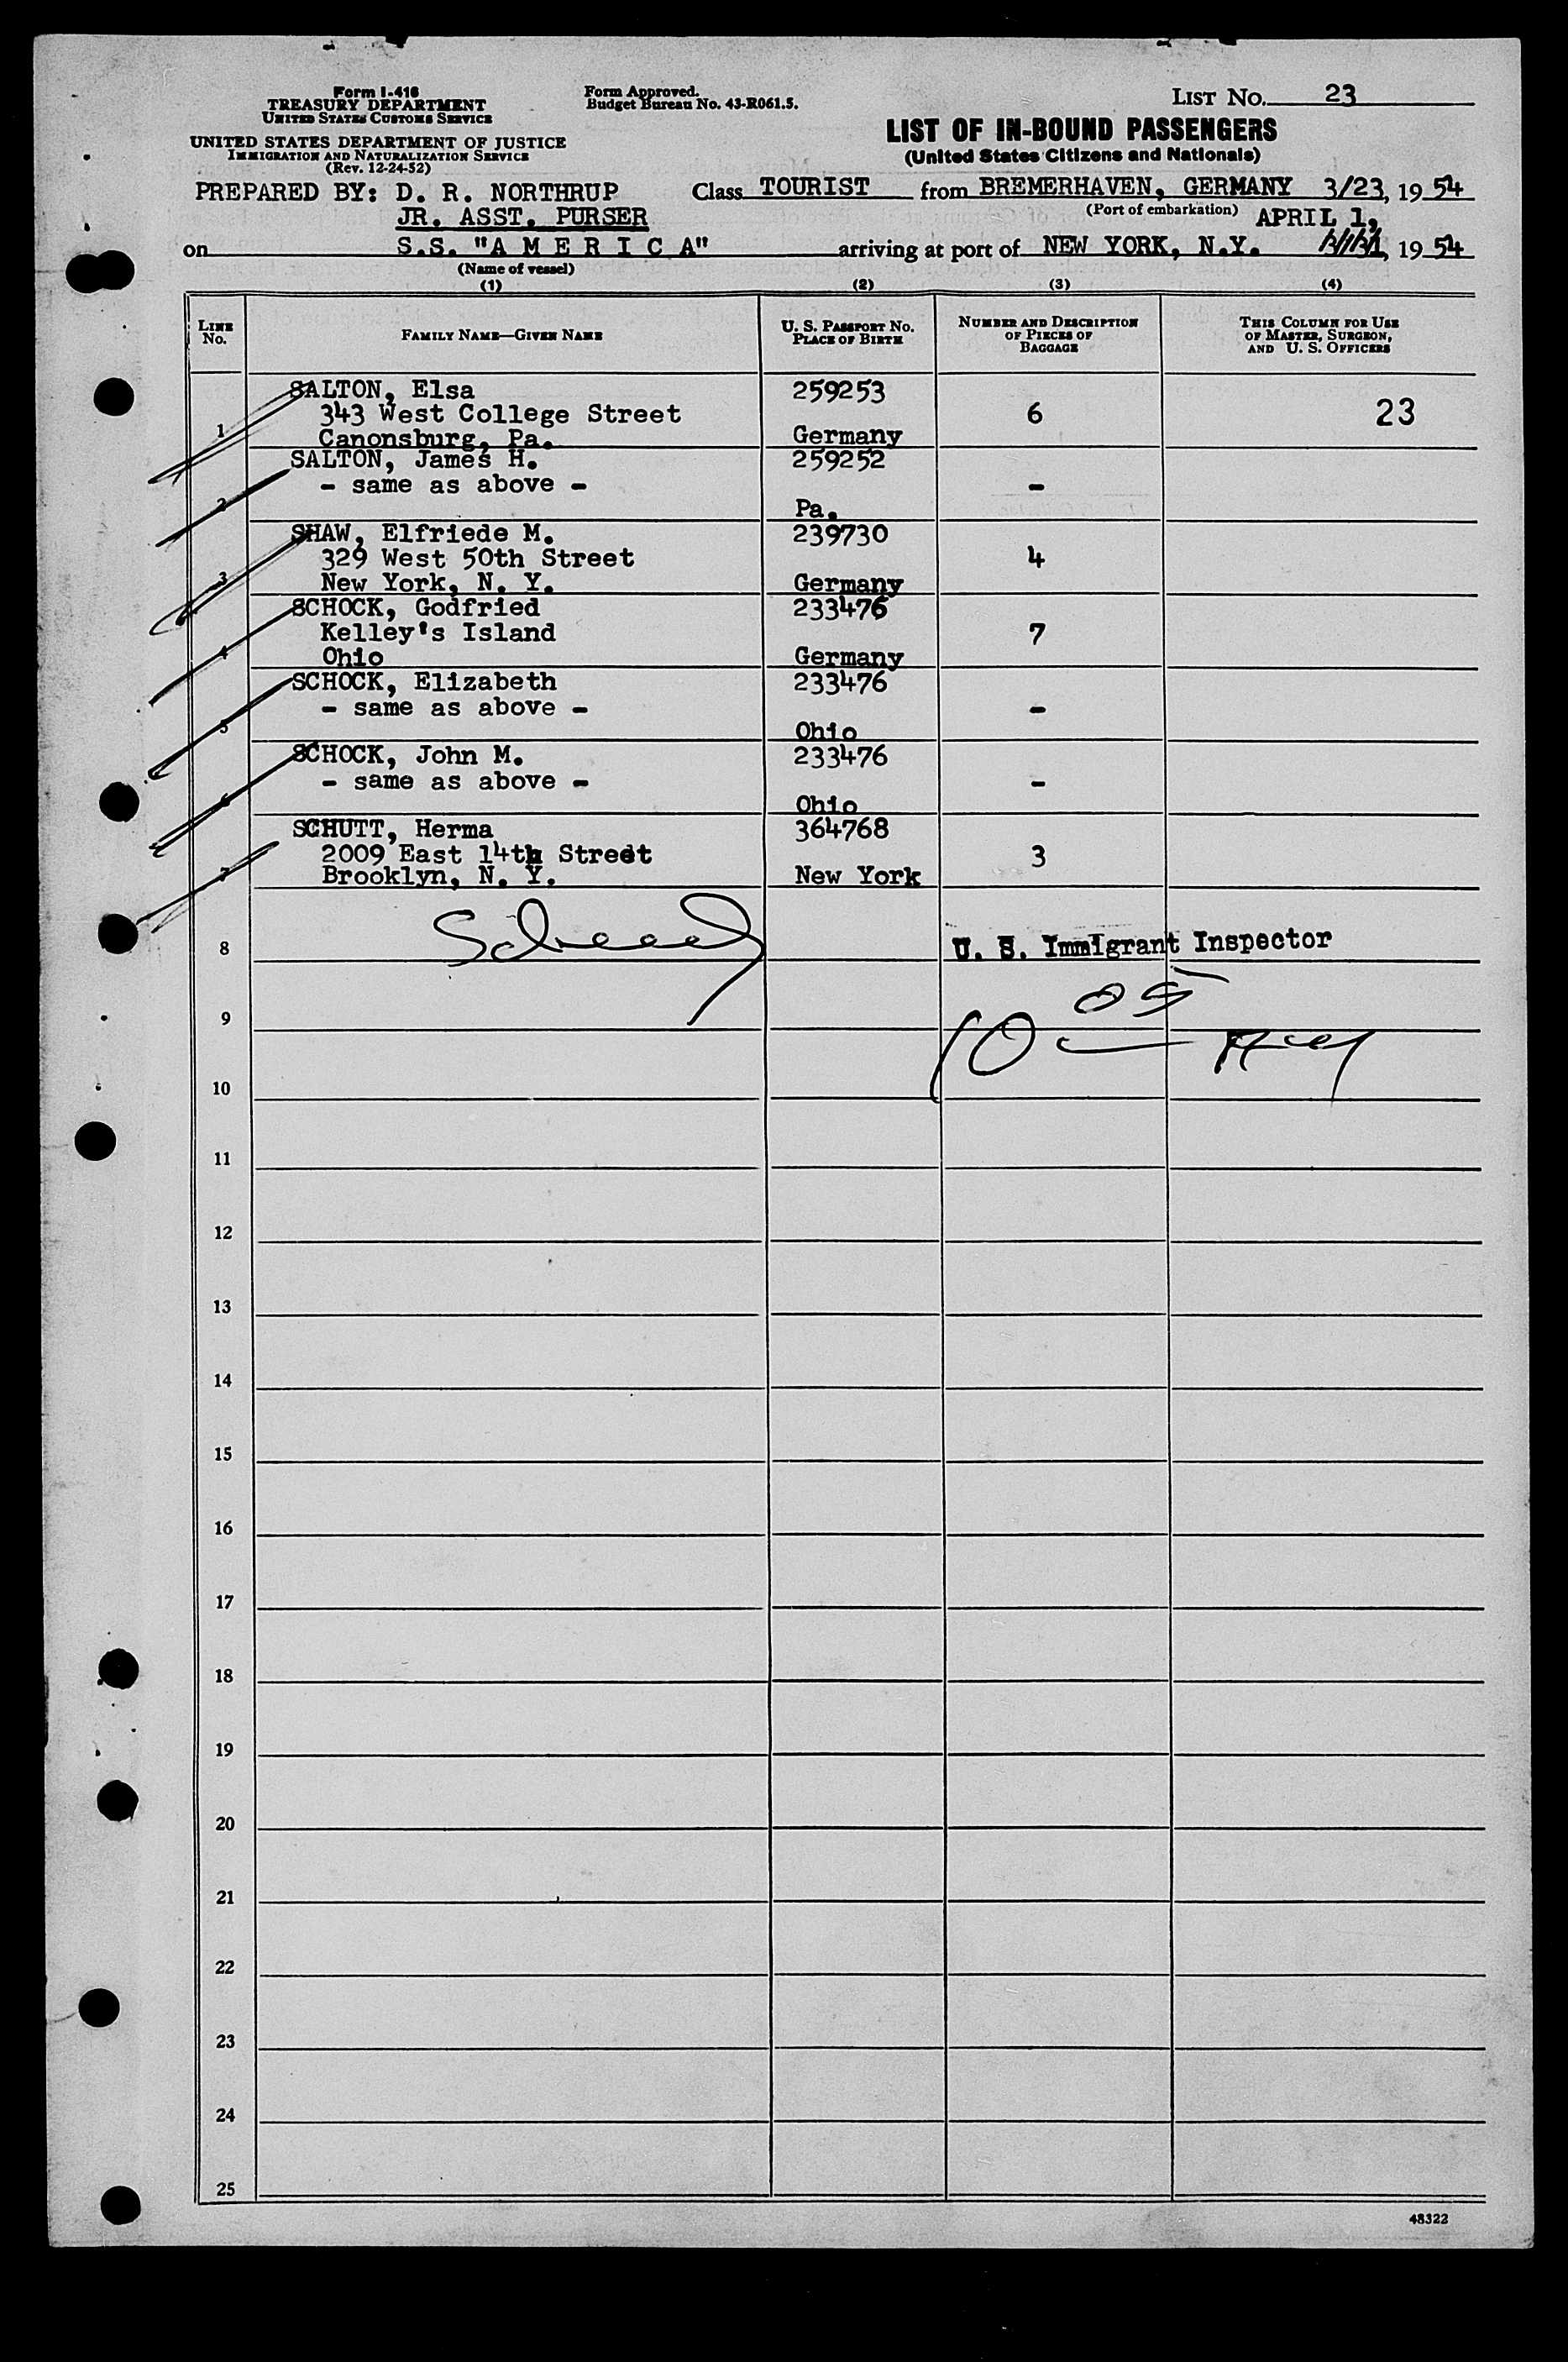 Form I-416
TREASURY DEPARTMENT
UNITED STATES CUSTOMS SERVICE
UNITED STATES DEPARTMENT OF JUSTICE
IMMIGRATION AND NATURALIZATION SERVICE
(Rev. 12-24-52)
Form Approved.
Budget Bureau No. 43-R061.5.
LIST NO. 23
LIST OF IN-BOUND PASSENGERS
(United States Citizens and Nationals)
PREPARED BY: D. R. NORTHRUP Class TOURIST from BREMERHAVEN, GERMANY 3/23, 1954
JR. ASST. PURSER (Port of embarkation) APRIL 1,
on S.S. "A M E R I C A" arriving at port of NEW YORK, N.Y. , 1954
(Name of vessel)
(1) (2) (3) (4)
LINE No. FAMILY NAME—GIVEN NAME U. S. PASSPORT NO. PLACE OF BIRTH NUMBER AND DESCRIPTION OF PIECES OF BAGGAGE THIS COLUMN FOR USE OF MASTER, SURGEON, AND U. S. OFFICERS
SALTON, Elsa 259253
1 343 West College Street 6 23
Canonsburg, Pa. Germany
SALTON, James H. 259252
2 - same as above - -
Pa.
SHAW, Elfriede M. 239730
3 329 West 50th Street 4
New York, N. Y. Germany
SCHOCK, Godfried 233476
4 Kelley's Island 7
Ohio Germany
SCHOCK, Elizabeth 233476
5 - same as above - -
Ohio
SCHOCK, John M. 233476
6 - same as above - -
Ohio
SCHUTT, Herma 364768
7 2009 East 14th Street 3
Brooklyn, N. Y. New York
8 U. S. Immigrant Inspector
9
10
11
12
13
14
15
16
17
18
19
20
21
22
23
24
25
48322